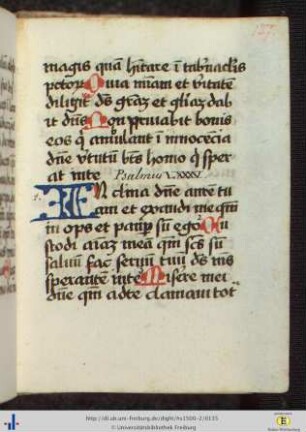 127
magis quā hītare ī tab'naclis
pctor Quia miam et v'itatē
diligit ds grāz et gliaz dab
it dns Non p'uabit bonis
eos q' ambulant ī innocēcia
dne v'tutū bts homo q' sper
at in te Psalmus LXXXV.
1. Inclina dne aurē tu
am et exaudi me qm
in ops et paup sū ego Cu
stodi aīaz meā qm scs su
saluū fac seruū tuū ds ms
sperantē in te Misere mei
dne qm ad te clamaui tot
http://dl.ub.uni-freiburg.de/diglit/hs1500-2/0135
© Universitätsbibliothek Freiburg